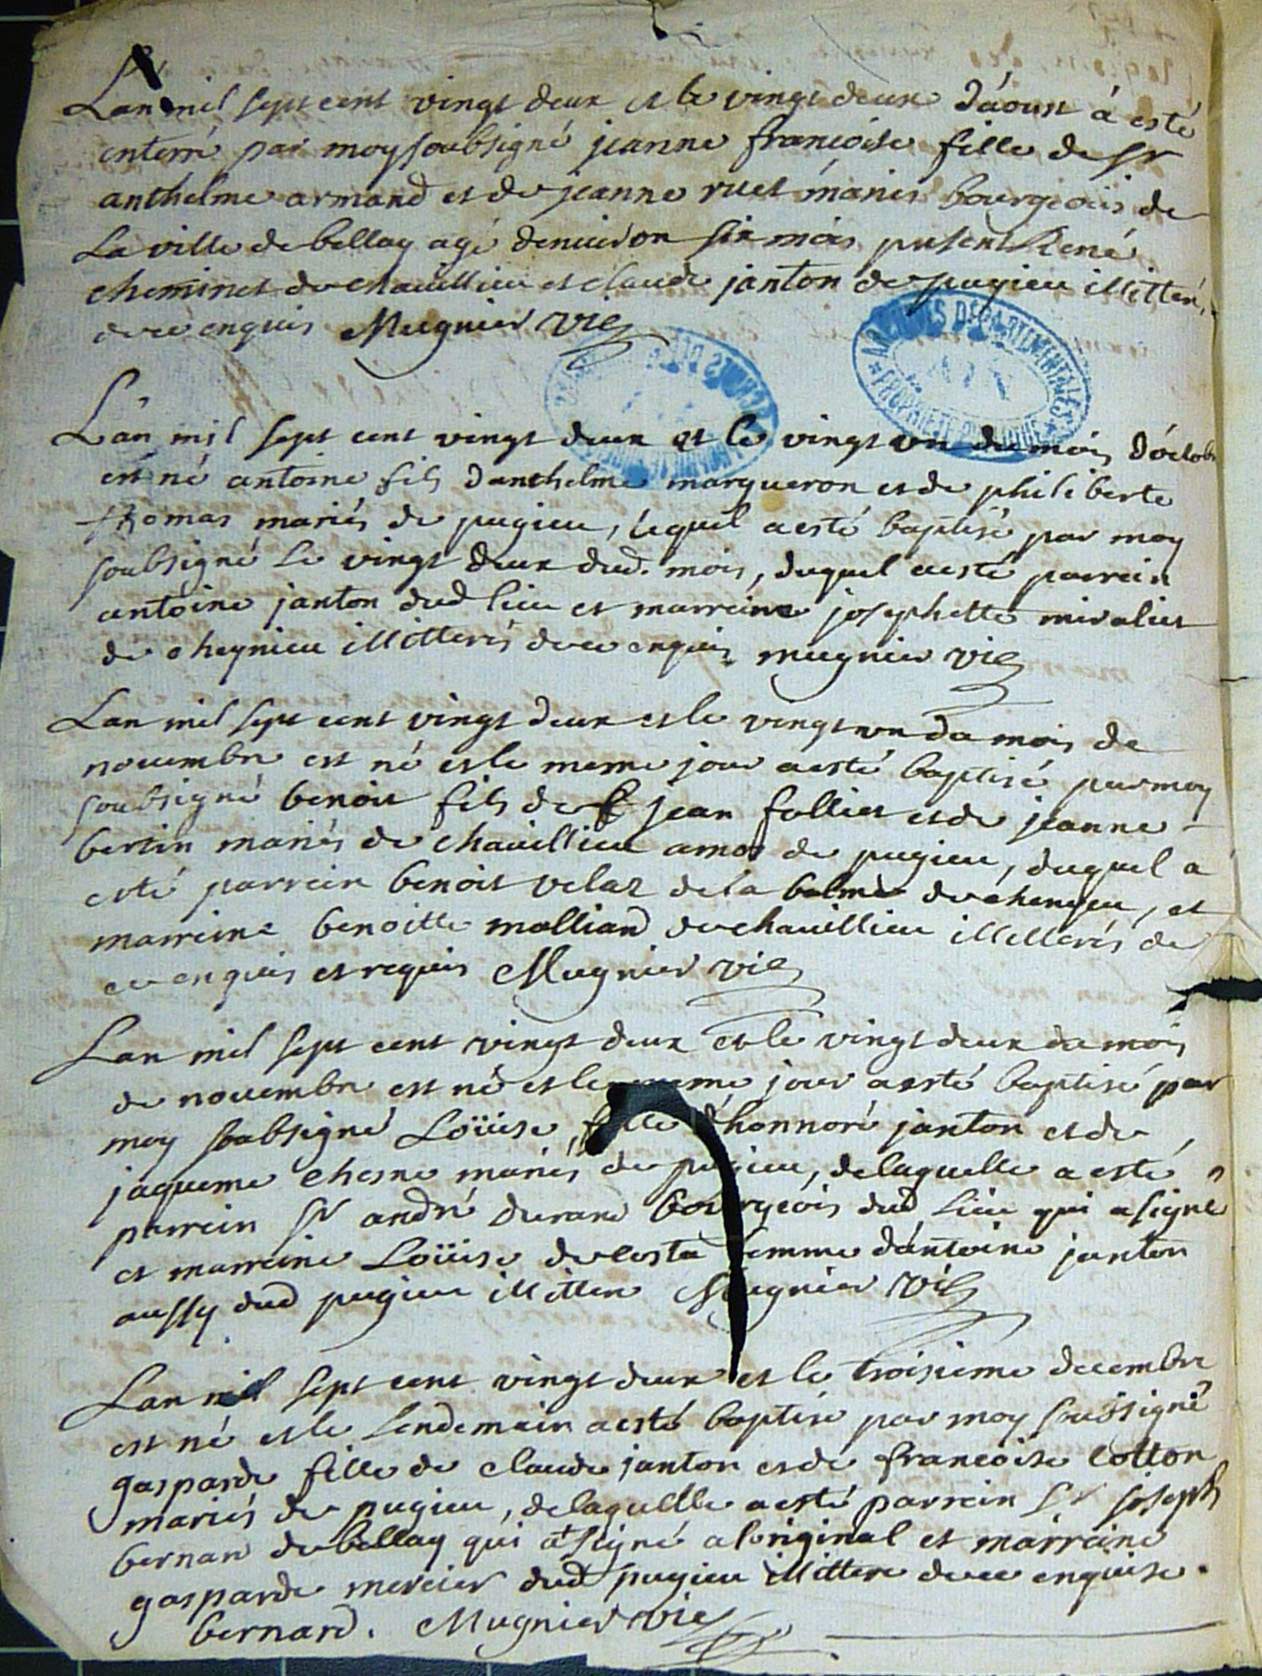 Lan mil sept cent vingt deux et le vingt deux d'áoust á esté
enterré par moy soubsigné jeanne francoise fille de Sr
anthelme armand et de jeanne ruet mariés bourgeois de
La ville de bellay agé denuiron six mois present René
cheminet de chauillieu et claude janton de pugieu illitteré,
de ce enquis Mugnier vic
ARCHIVES DÉPARTEMENTALES
AIN
Lan mil sept cent vingt deux et le vingt un du mois d'octobr
est né antoine fils danthelme margueron et de philiberte
thomas mariés de pugieu, lequel a esté baptisé par moy
soubsigné le vingt deux dud. mois, duquel a esté parrein
antoine janton dud lieu et marreine josephette miralier
de cheynieu illitterés de ce enquis mugnier vic
Lan mil sept cent vingt deux et le vingt un du mois de
nouembre est né et le meme jour a esté baptisé par moy
soubsigné benoit fils de jean follier et de jeanne
bertin mariés de chauillieu amos de pugieu, duquel a
esté parrein benoit velaz de la balme de chengeu, et
marreine benoitte molliand de chauillieu illitterés de
ce enquis et requis Mugnier vic
Lan mil sept cent vingt deux et le vingt deux du mois
de nouembre est né et le meme jour a esté baptisé par
moy soubsigné Loüise fille d'honnoré janton et de
jaqueme chesne mariés de pugieu, de laquelle a esté
parrein Sr andré durand bourgeois dud lieu qui a signé
et marreine Loüise de costa femme d'antoine janton
aussy dud pugieu illittere Mugnier vic
Lan mil sept cent vingt deux et le troisieme decembre
est né et le lendemain a esté baptisé par moy soussigné
gasparde fille de claude janton et de francoise cotton
mariés de pugieu, de laquelle a esté parrein Sr joseph
bernard de bellay qui a signé a loriginal et marreine
gasparde mercier dud pugieu illittere de ce enquise.
bernard. Mugnier vic